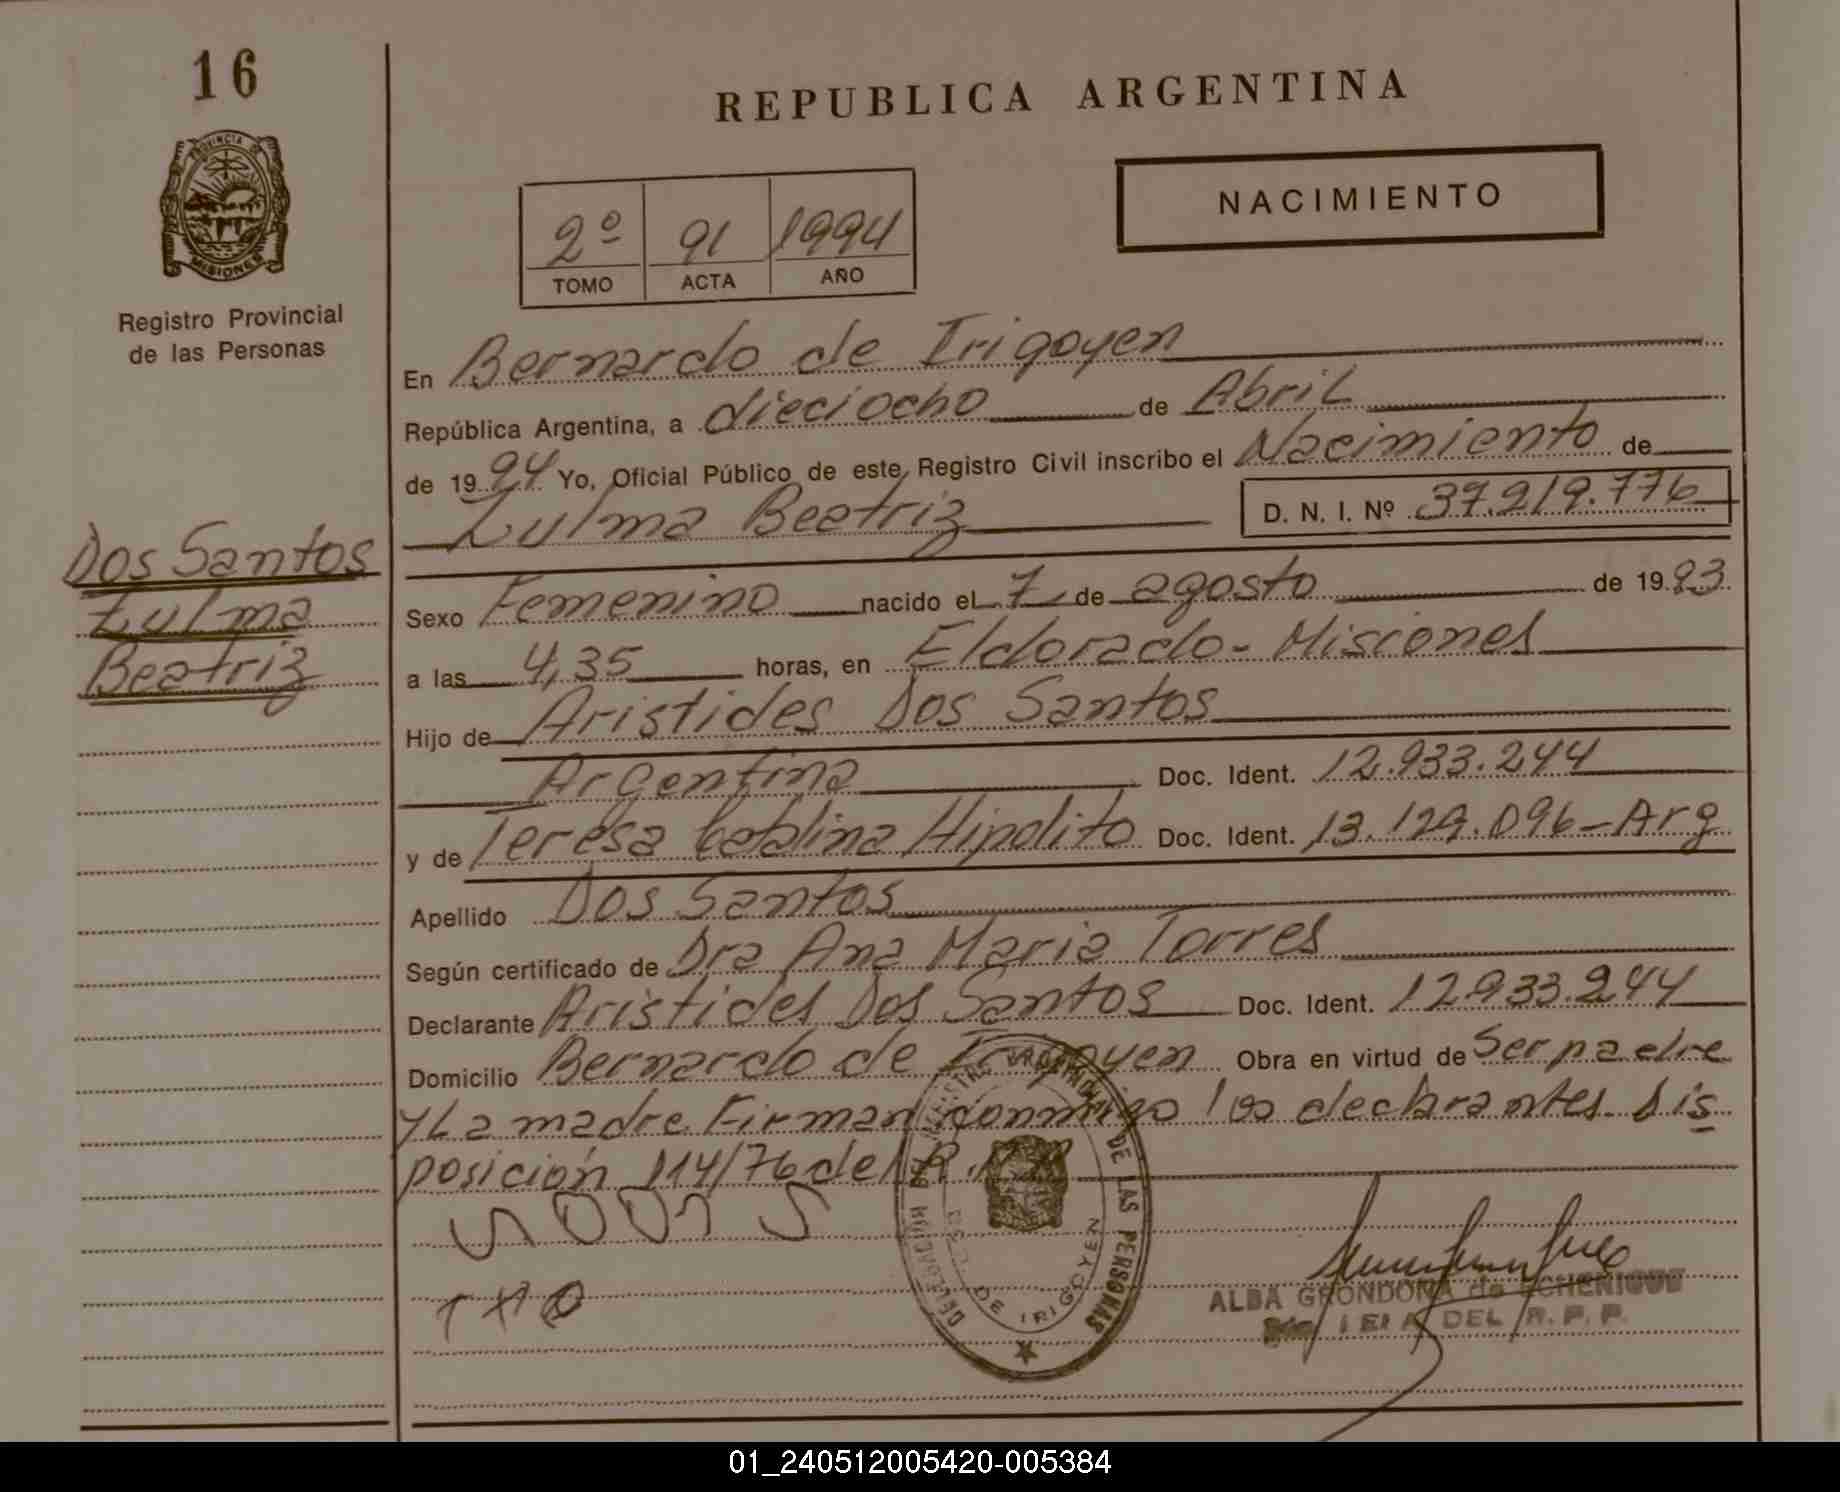 16
PROVINCIA DE
MISIONES
Registro Provincial
de las Personas
Dos Santos
Zulma
Beatriz
REPUBLICA ARGENTINA
NACIMIENTO
2º 91 1994
TOMO ACTA AÑO
En Bernardo de Irigoyen
República Argentina, a dieciocho de Abril
de 1994 Yo, Oficial Público de este Registro Civil inscribo el Nacimiento de
Zulma Beatriz D. N. I. Nº 37.219.776
Sexo Femenino nacido el 7 de agosto de 1993
a las 4,35 horas, en Eldorado - Misiones
Hijo de Aristides Dos Santos
Argentina Doc. Ident. 12.933.244
y de Teresa Hipolito Doc. Ident. 13.129.096-Arg
Apellido Dos Santos
Según certificado de Dra Ana Maria Torres
Declarante Aristides Dos Santos Doc. Ident. 12933.244
Domicilio Bernardo de Irigoyen Obra en virtud de Ser padre
y La madre. Firman conmigo los declarantes. Dis
posición 114/76 del R.
DE LAS PERSONAS
DE IRIGOYEN
ALBA GRONDONA de ECHENIQUE
DEL R. P. P.
01_240512005420-005384